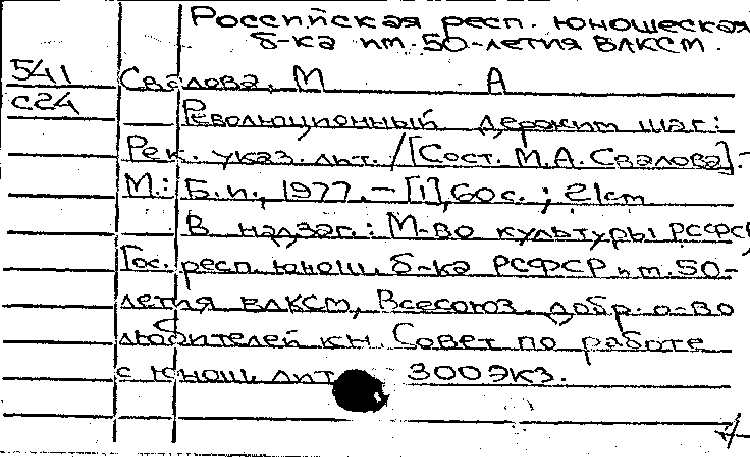 Российская респ. юношеская
б-ка им. 50-летия ВЛКСМ.
541 Свалова, М А
С24
Революционный держит шаг:
Рек. указ. лит. /[Сост. М.А. Свалова].-
М.: Б.и., 1977. – [1], 60 с. ; 21 см
В надзаг.: М-во культуры РСФСР,
Гос. респ. юнош. б-ка РСФСР им. 50-
летия ВЛКСМ, Всесоюз. добр. о-во
любителей кн. Совет по работе
с юнош. лит 300 экз.